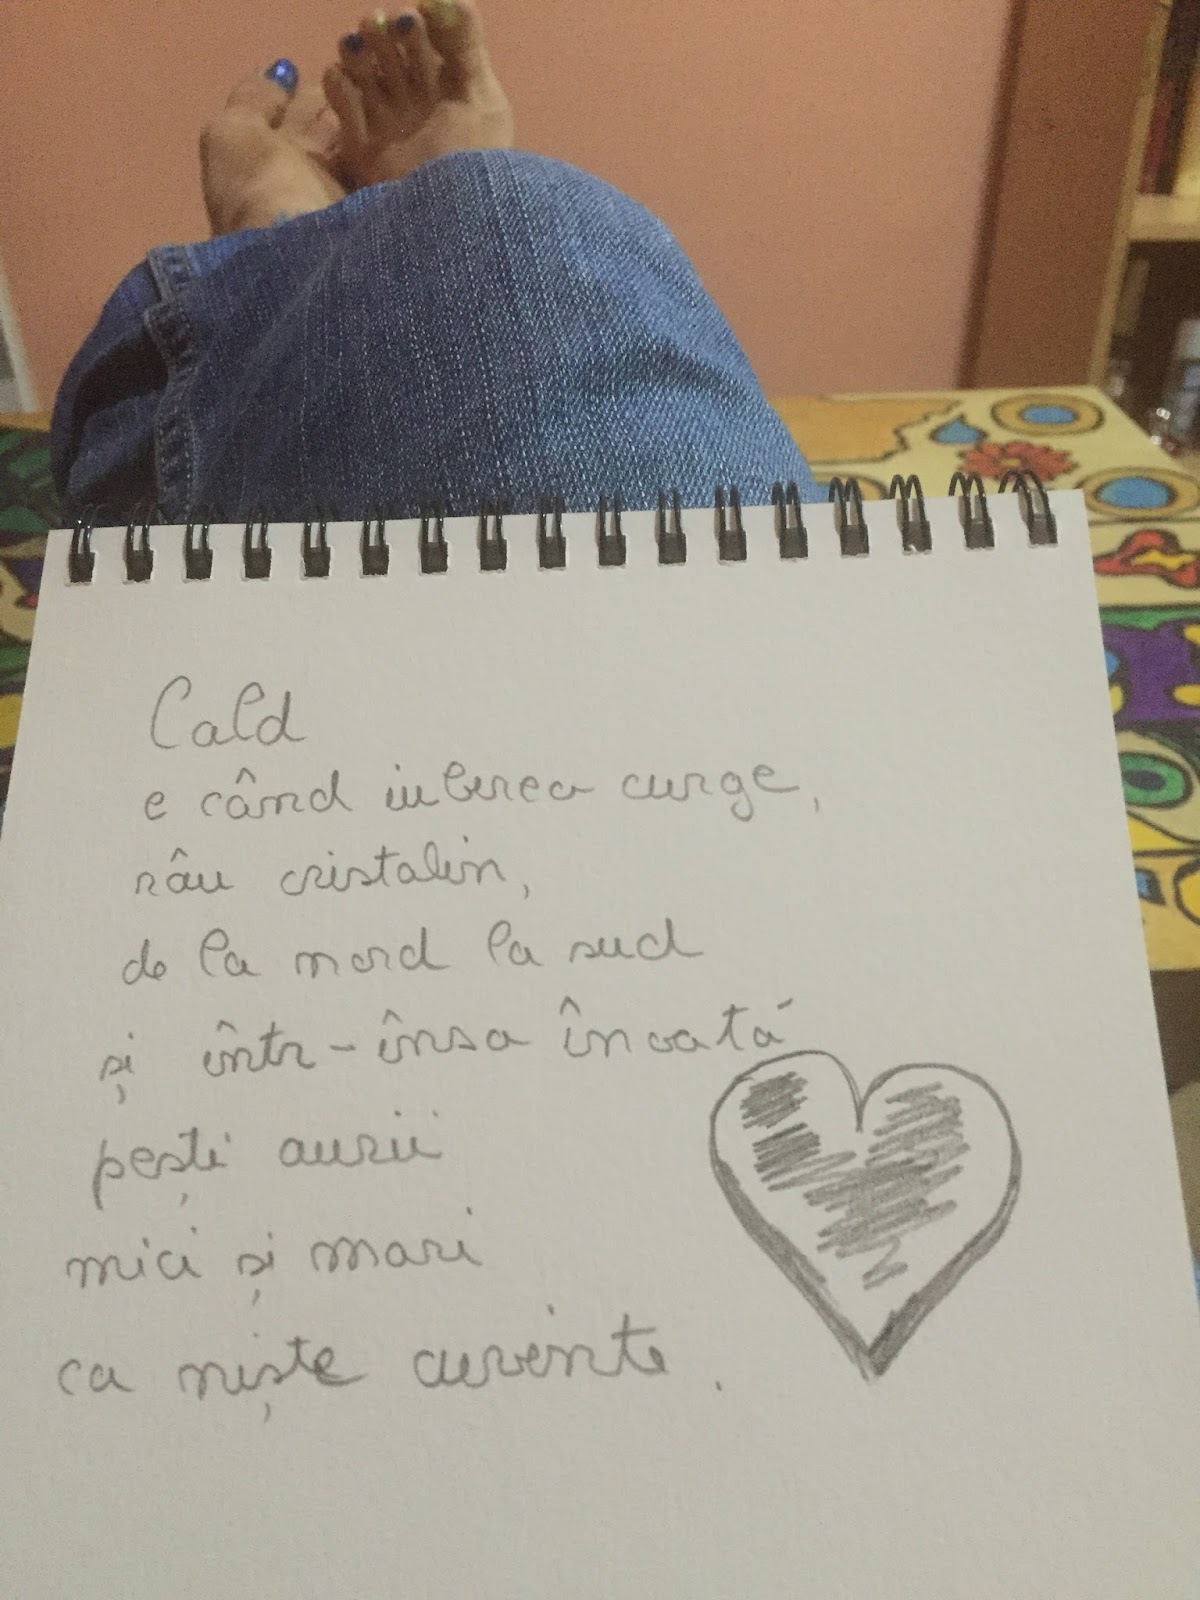 Cald
e când iubirea curge,
râu cristalin,
de la nord la sud
și într-însa înoată
pești aurii
mici și mari
ca niște cuvinte.